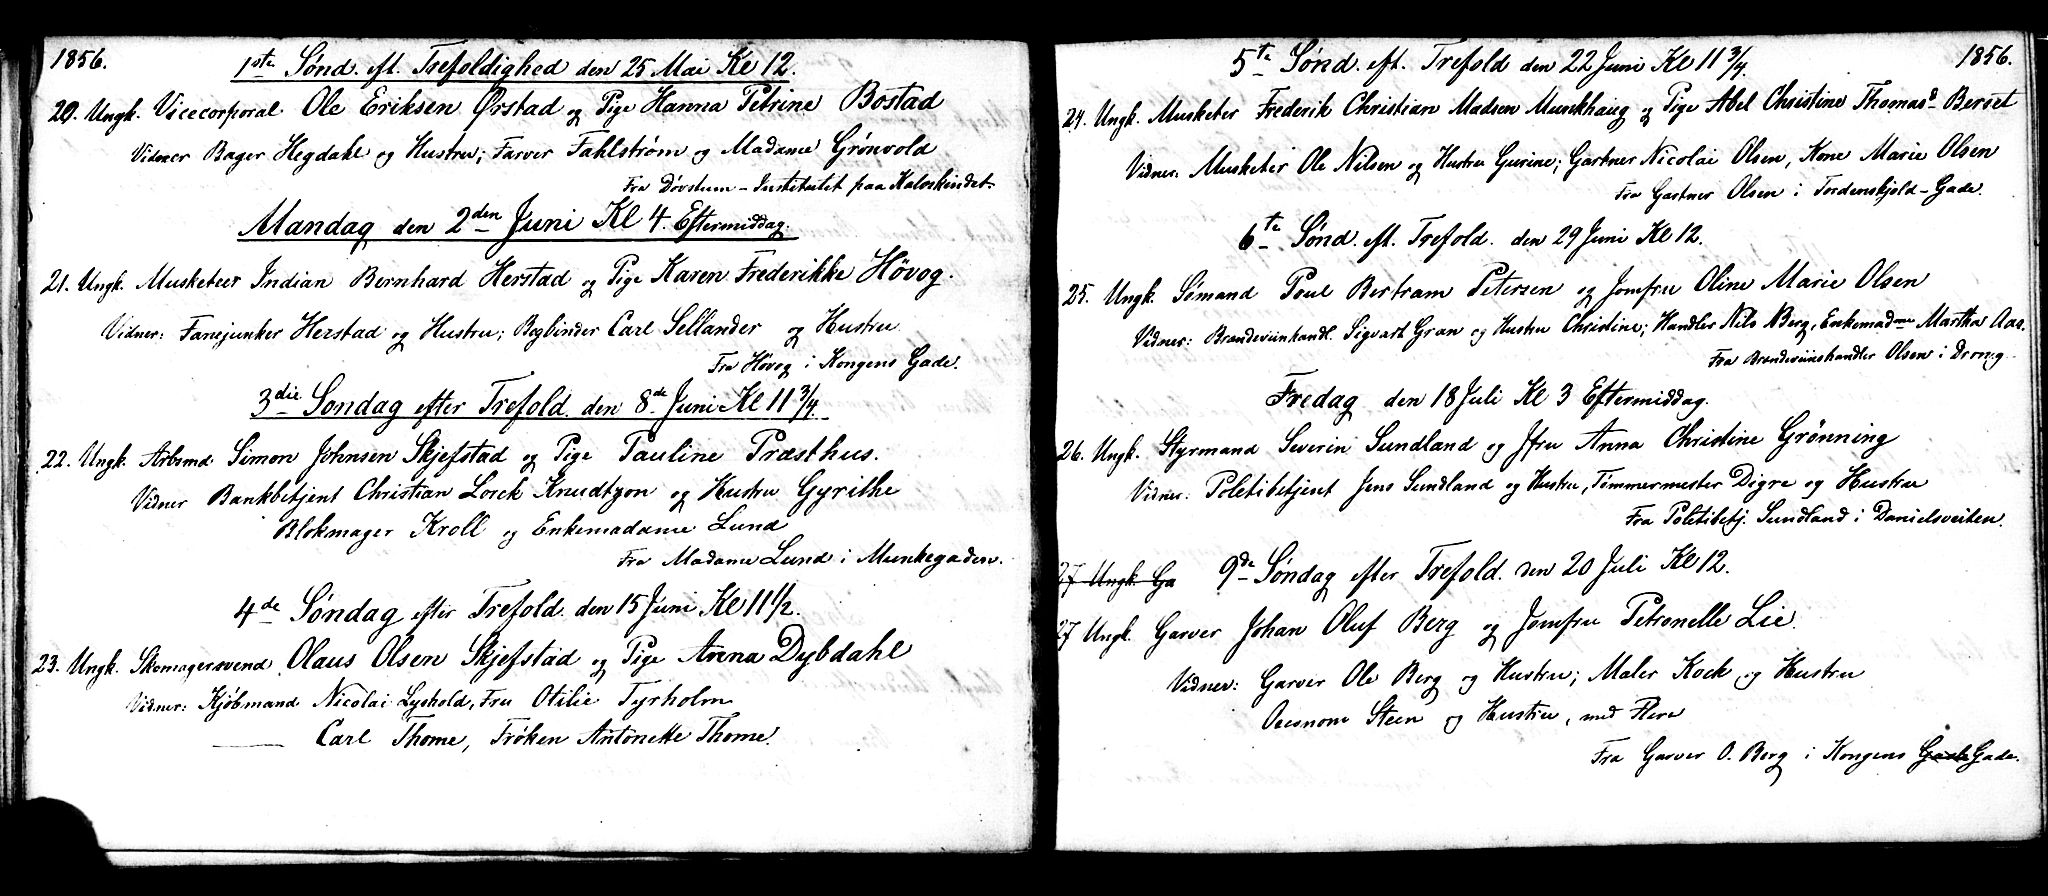 1856.
1ste Sønd. eft. Trefoldighed den 25 Mai Kl 12.
20. Ungk. Vicecorporal Ole Eriksen Ørstad og Pige Hanna Petrine Bostad
Vidner Bager Hegdahl og Hustru; Farver Fahlstrøm og Madame Grønvold
Fra Døvstum-Institutet paa Kalvskindet.
Mandag den 2den Juni Kl 4. Eftermiddag.
21. Ungk. Musketeer Indian Bernhard Herstad og Pige Karen Frederikke Høvog.
Vidner: Fanejunker Herstad og Hustru; Bogbinder Carl Sellander og Hustru
Fra Høvog i Kongens Gade.
3die Søndag efter Trefold. den 8de Juni Kl 11 3/4.
22. Ungk. Arbmd. Simon Johnsen Skjefstad og Pige Pauline Præsthus.
Vidner Bankbetjent Christian Lorck Knudtzon og Hustru Gyrithe
Blokmager Kroll og Enkemadame Lund
Fra Madame Lund i Munkegaden.
4de Søndag efter Trefold. den 15 Juni Kl 11 1/2.
23. Ungk. Skomagersvend Olaus Olsen Skjefstad og Pige Anna Dybdahl
Vidner: Kjøbmand Nicolai Lysholm, Fru Otilie Tyrholm
Carl Thome, Frøken Antonette Thome.
1856.
5te Sønd. eft. Trefold den 22 Juni Kl 11 3/4.
24. Ungk. Musketer Frederik Christian Madsen Munkhaug og Pige Abel Christine Thomasd Berset
Vidner: Musketer Ole Nilsen og Hustru Gurine; Gartner Nicolai Olsen, Kone Marie Olsen
Fra Gartner Olsen i Tordenskjold-Gade.
6te Sønd. eft. Trefold. den 29 Juni Kl 12.
25. Ungk. Sømand Poul Bertram Petersen og Jomfru Oline Marie Olsen
Vidner: Brændeviinhandl. Sigvart Gran og Hustru Christine; Handler Nils Berg, Enkemadme Martha Aas.
Fra Brændeviinshandler Olsen i Drong.
Fredag den 18 Juli Kl 3 Eftermiddag.
26. Ungk. Styrmand Severin Sundland og Jfru Anna Christine Grønning
Vidner: Politibetjent Jens Sundland og Hustru, Tømmermester Digre og Hustru
Fra Politibetj. Sundland i Danielsveiten.
27 Ungk. Ga 9de Søndag efter Trefold. den 20 Juli Kl 12.
27 Ungk. Garver Johan Oluf Berg og Jomfru Petronelle Lie.
Vidner: Garver Ole Berg og Hustru; Maler Kock og Hustru
Steen og Hustru, med Flere
Fra Garver O. Berg i Kongens Gade Gade.